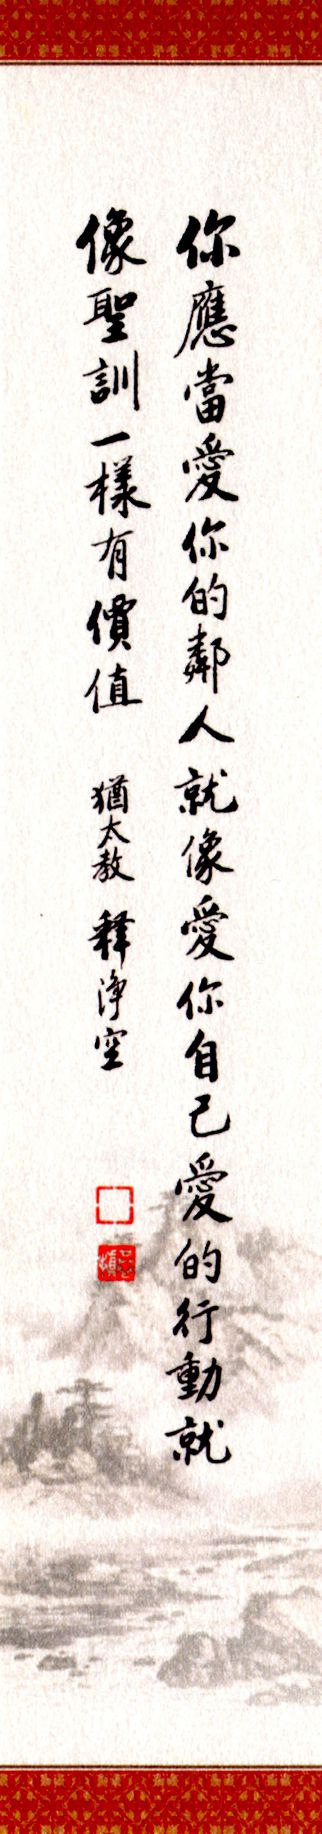 你應當愛你的鄰人就像愛你自己愛的行動就
像聖訓一樣有價值 猶太教 釋淨空